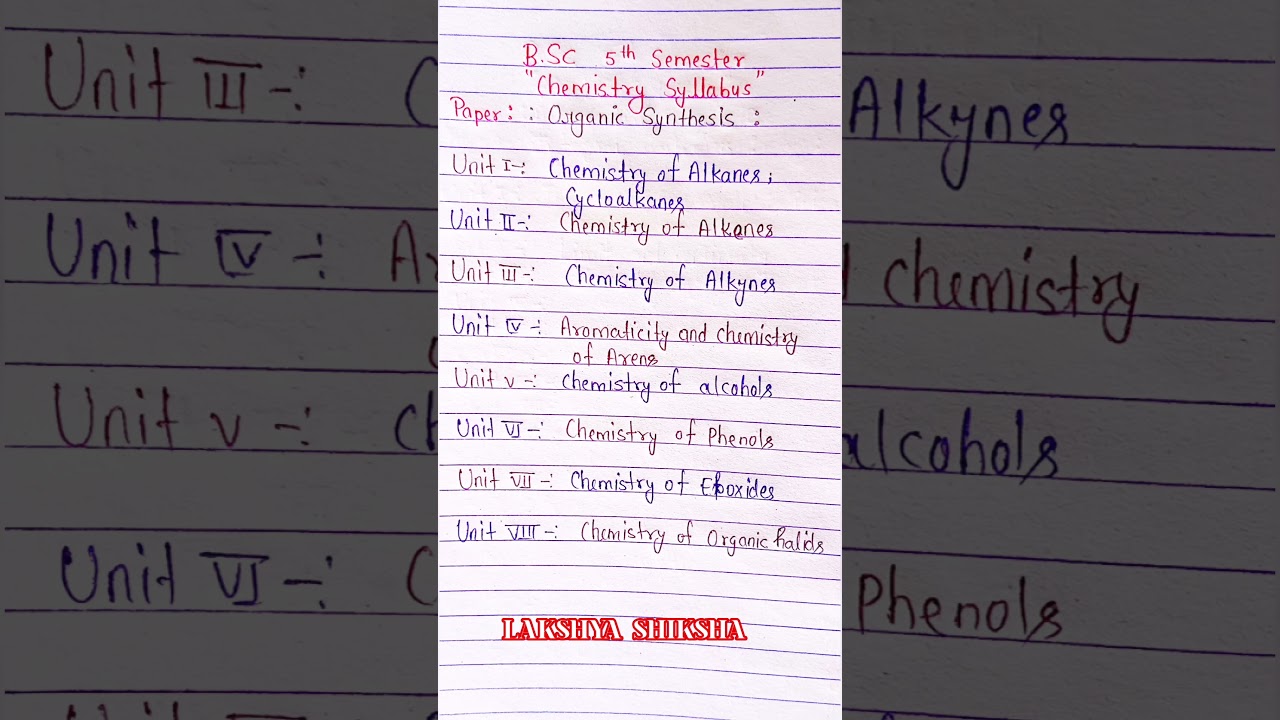 B.SC 5th Semester
"Chemistry Syllabus"
Paper: : Organic Synthesis :
Unit I-: Chemistry of Alkanes;
Cycloalkanes
Unit II-: Chemistry of Alkenes
Unit III-: Chemistry of Alkynes
Unit IV-: Aromaticity and chemistry
of Arens
Unit V-: Chemistry of alcohols
Unit VI-: Chemistry of Phenols
Unit VII-: Chemistry of Epoxides
Unit VIII-: Chemistry of Organic halids
LAKSHYA SHIKSHA
Unit III-: C
Alkynes
Unit IV-: Ar
chemistry
Unit V-: ch
alcohols
Unit VI-: C
Phenols